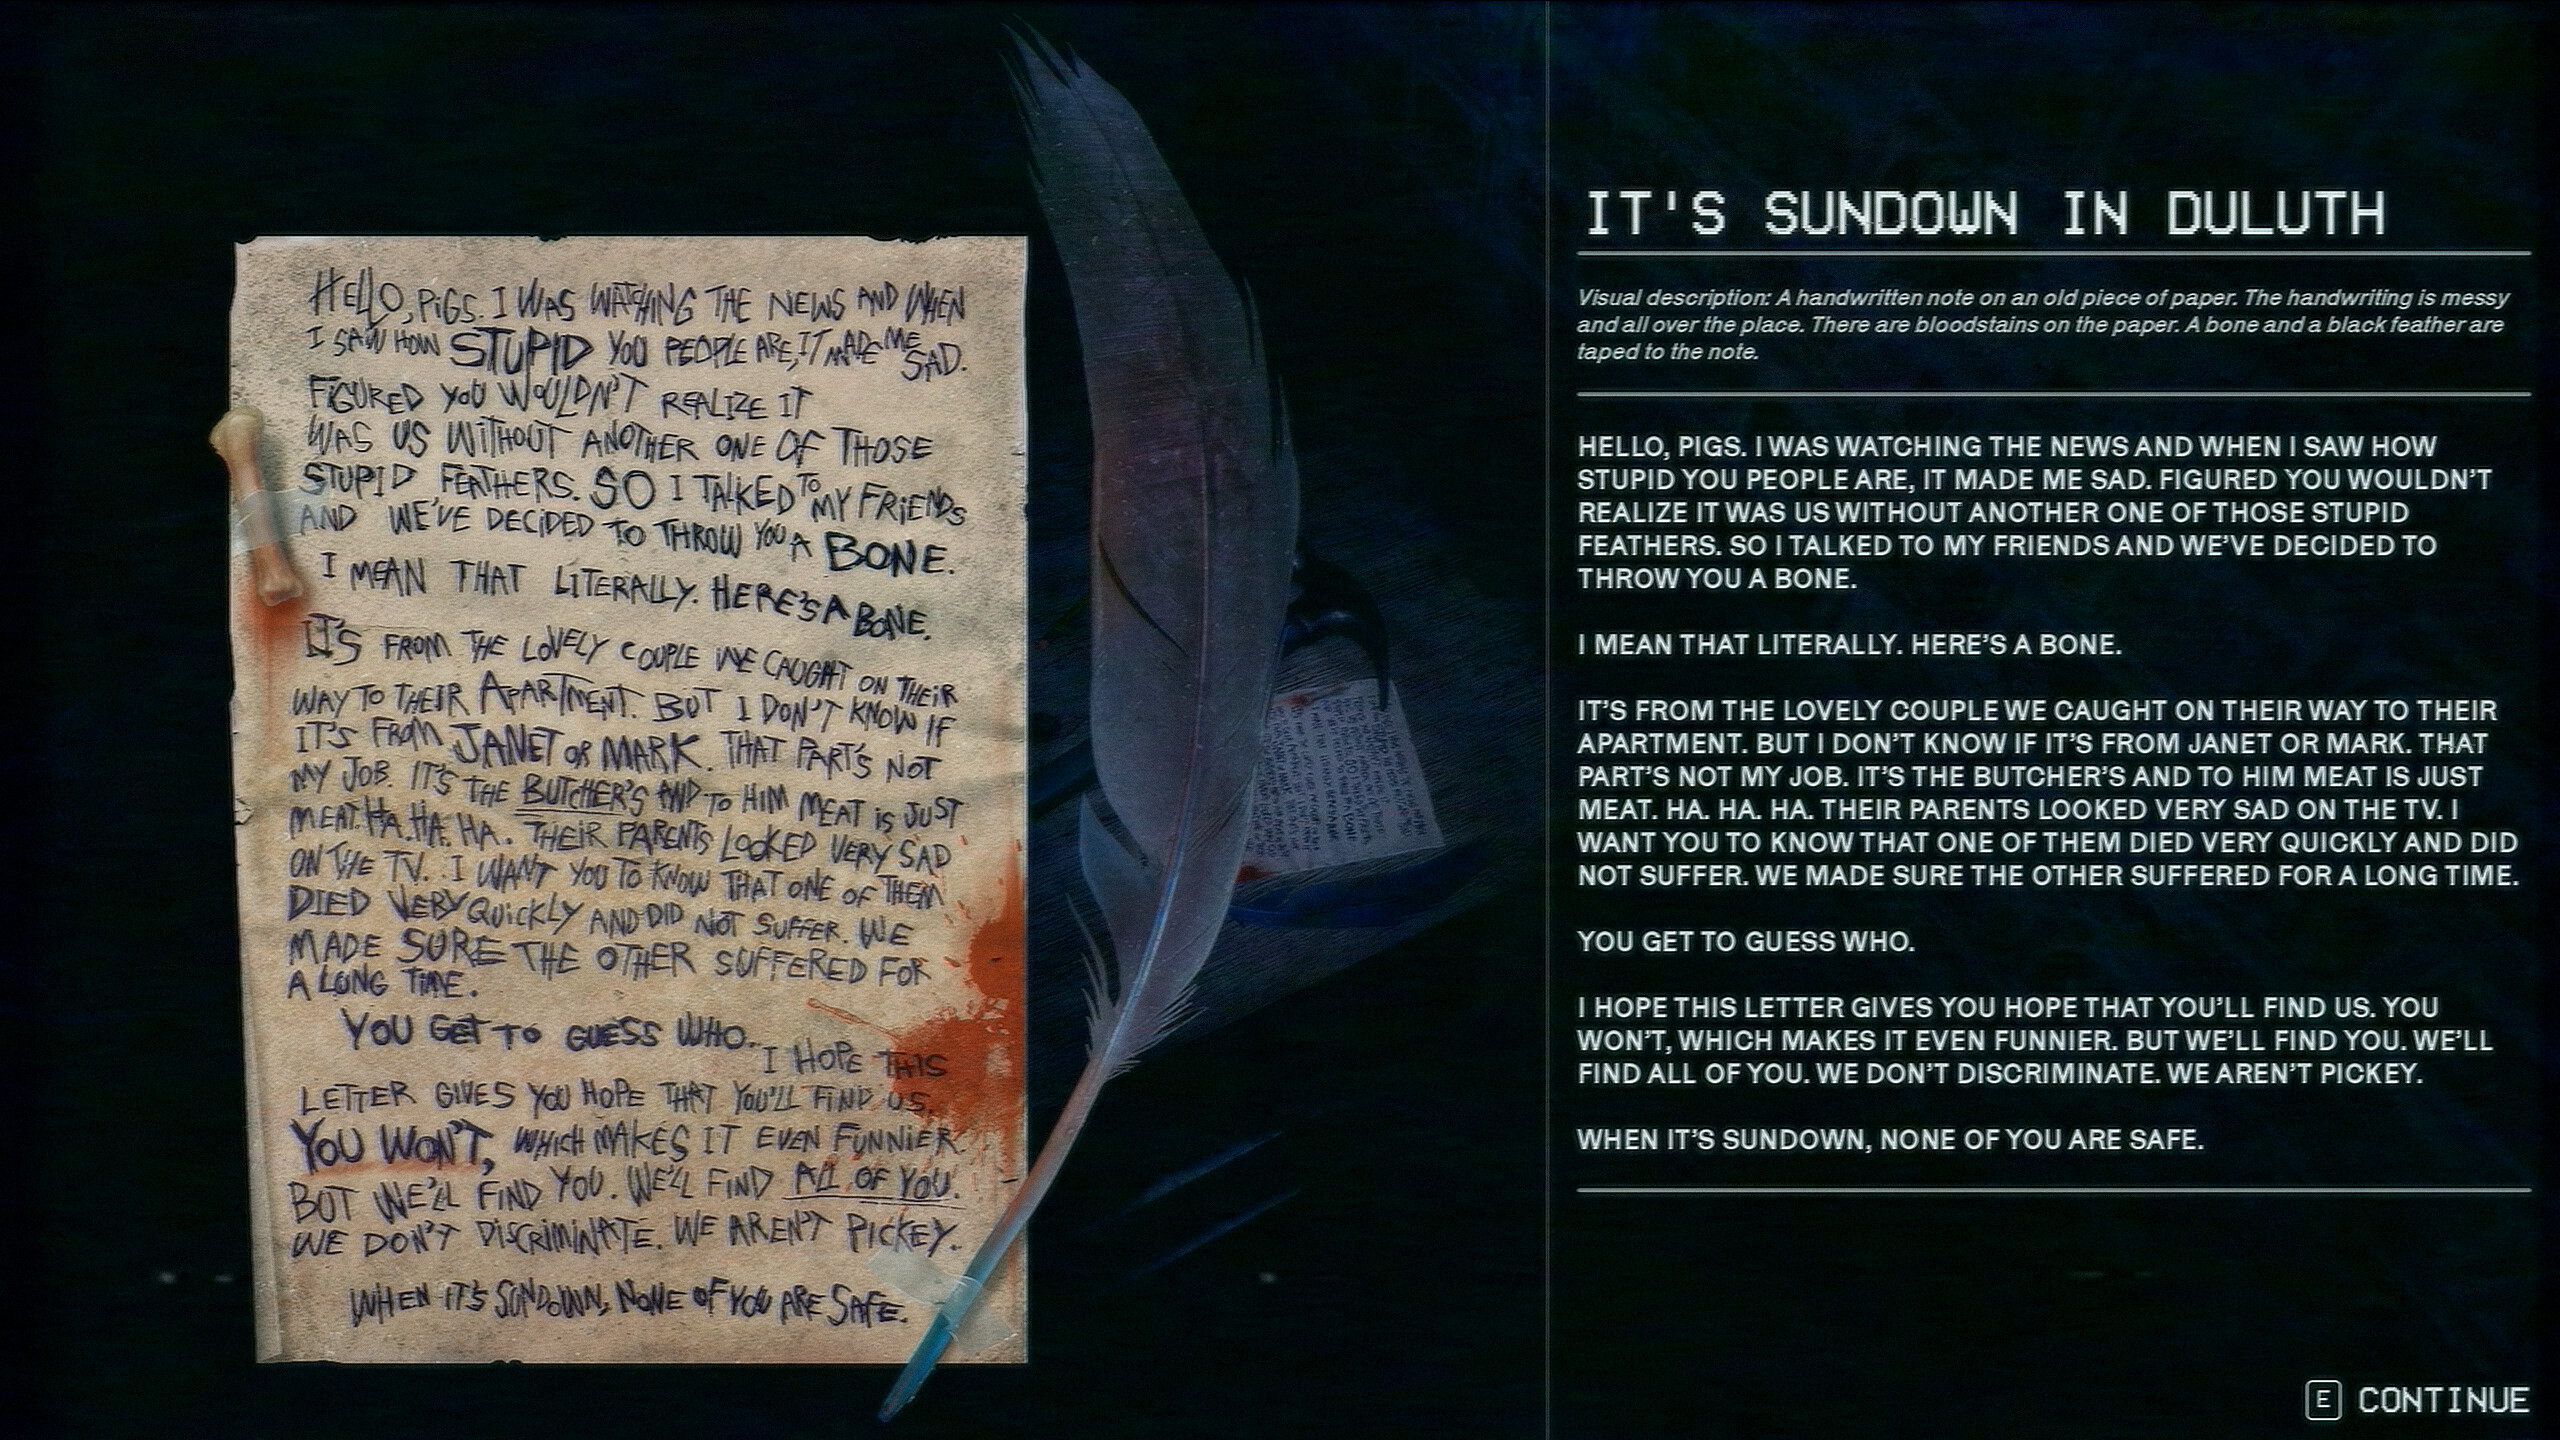 HELLO, PIGS. I WAS WATCHING THE NEWS AND WHEN
I SAW HOW STUPID YOU PEOPLE ARE, IT MADE ME
SAD.
FIGURED YOU WOULDN'T REALIZE IT
WAS US WITHOUT ANOTHER ONE OF THOSE
STUPID FEATHERS. SO I TALKED TO MY FRIENDS
AND WE'VE DECIDED TO THROW YOU A BONE.
I MEAN THAT LITERALLY. HERE'S A BONE.
IT'S FROM THE LOVELY COUPLE WE CAUGHT ON THEIR
WAY TO THEIR APARTMENT. BUT I DON'T KNOW IF
IT'S FROM JANET OR MARK. THAT PART'S NOT
MY JOB. IT'S THE BUTCHER'S AND TO HIM MEAT IS JUST
MEAT. HA. HA. HA. THEIR PARENTS LOOKED VERY SAD
ON THE TV. I WANT YOU TO KNOW THAT ONE OF THEM
DIED VERY QUICKLY AND DID NOT SUFFER. WE
MADE SURE THE OTHER SUFFERED FOR
A LONG TIME.
YOU GET TO GUESS WHO.
I HOPE THIS
LETTER GIVES YOU HOPE THAT YOU'LL FIND US.
YOU WON'T, WHICH MAKES IT EVEN FUNNIER.
BUT WE'LL FIND YOU. WE'LL FIND ALL OF YOU.
WE DON'T DISCRIMINATE. WE AREN'T PICKEY.
WHEN IT'S SUNDOWN, NONE OF YOU ARE SAFE.
IT'S SUNDOWN IN DULUTH
Visual description: A handwritten note on an old piece of paper. The handwriting is messy
and all over the place. There are bloodstains on the paper. A bone and a black feather are
taped to the note.
HELLO, PIGS. I WAS WATCHING THE NEWS AND WHEN I SAW HOW
STUPID YOU PEOPLE ARE, IT MADE ME SAD. FIGURED YOU WOULDN'T
REALIZE IT WAS US WITHOUT ANOTHER ONE OF THOSE STUPID
FEATHERS. SO I TALKED TO MY FRIENDS AND WE'VE DECIDED TO
THROW YOU A BONE.
I MEAN THAT LITERALLY. HERE'S A BONE.
IT'S FROM THE LOVELY COUPLE WE CAUGHT ON THEIR WAY TO THEIR
APARTMENT. BUT I DON'T KNOW IF IT'S FROM JANET OR MARK. THAT
PART'S NOT MY JOB. IT'S THE BUTCHER'S AND TO HIM MEAT IS JUST
MEAT. HA. HA. HA. THEIR PARENTS LOOKED VERY SAD ON THE TV. I
WANT YOU TO KNOW THAT ONE OF THEM DIED VERY QUICKLY AND DID
NOT SUFFER. WE MADE SURE THE OTHER SUFFERED FOR A LONG TIME.
YOU GET TO GUESS WHO.
I HOPE THIS LETTER GIVES YOU HOPE THAT YOU'LL FIND US. YOU
WON'T, WHICH MAKES IT EVEN FUNNIER. BUT WE'LL FIND YOU. WE'LL
FIND ALL OF YOU. WE DON'T DISCRIMINATE. WE AREN'T PICKEY.
WHEN IT'S SUNDOWN, NONE OF YOU ARE SAFE.
E CONTINUE